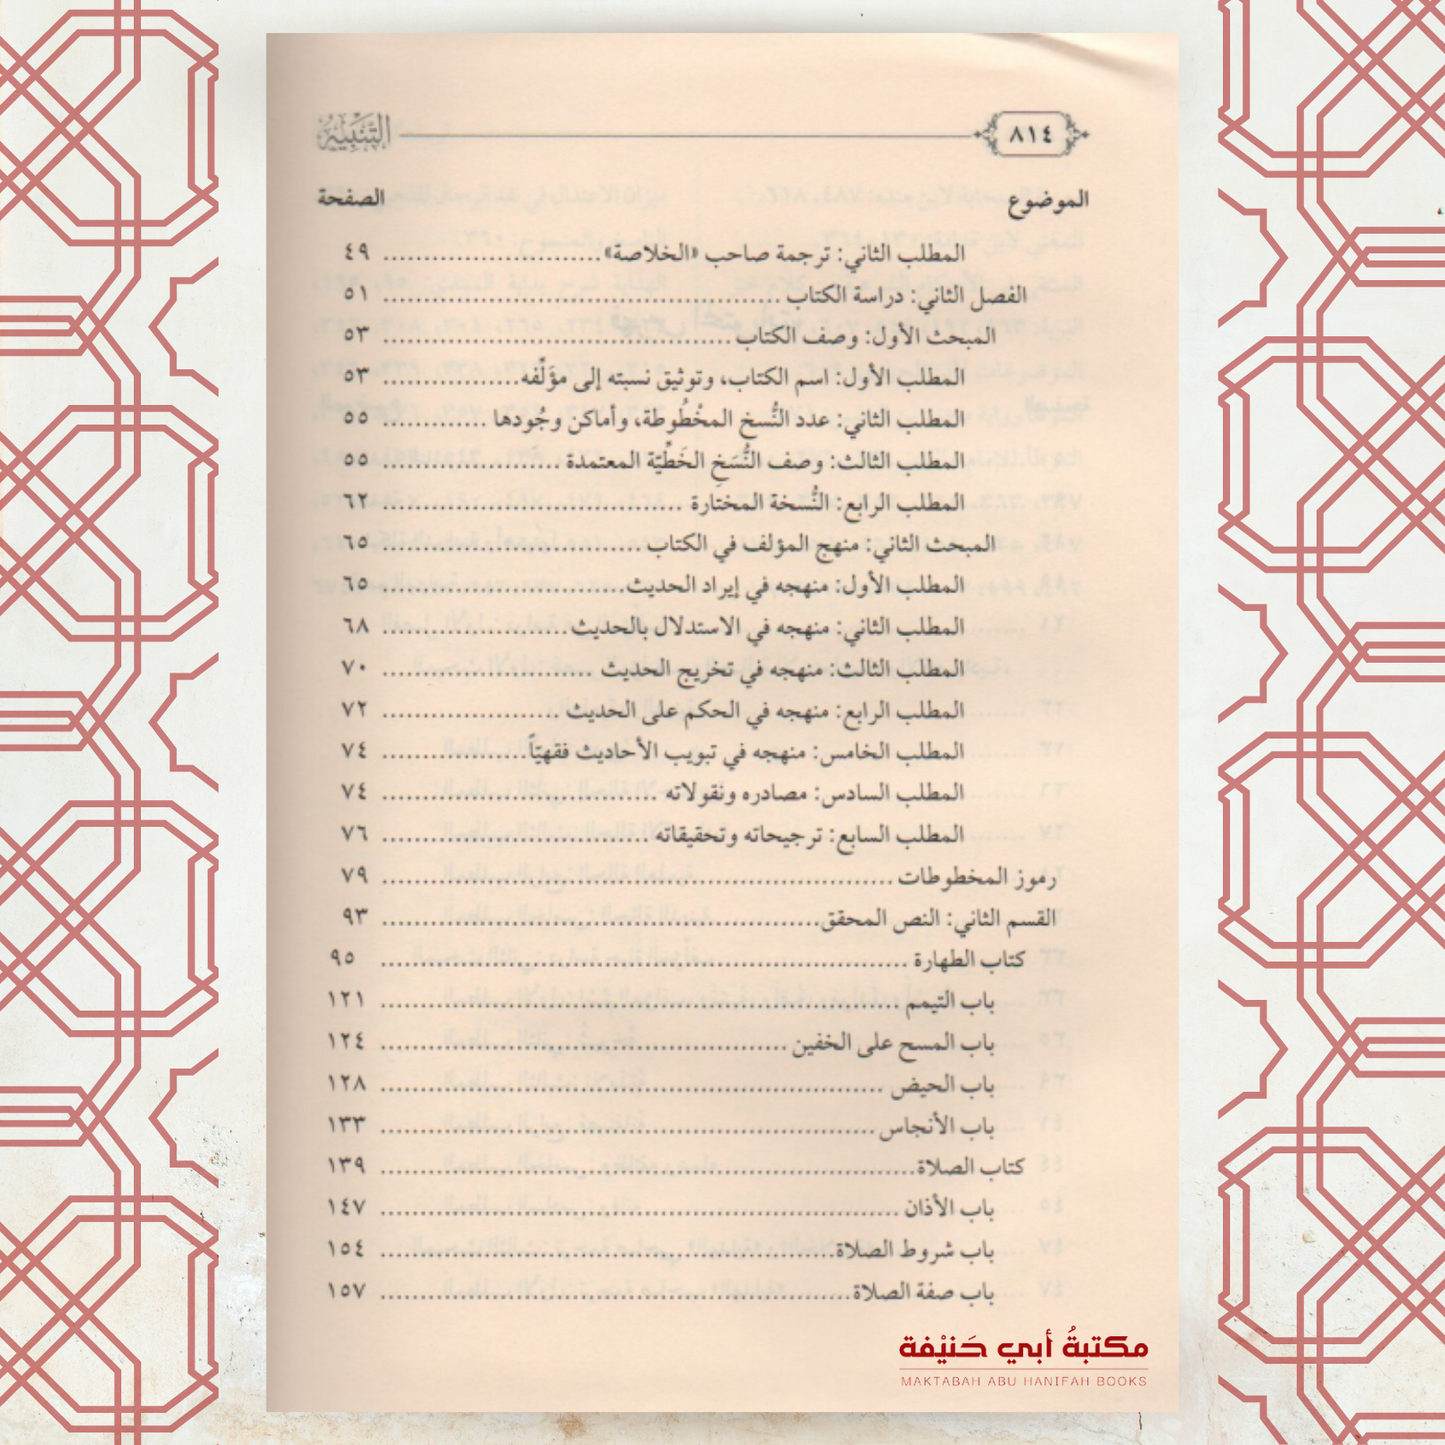 ٨١٤ التنبيه
الموضوع الصفحة
المطلب الثاني: ترجمة صاحب «الخلاصة» ........................... ٤٩
الفصل الثاني: دراسة الكتاب .................................................. ٥١
المبحث الأول: وصف الكتاب ............................................ ٥٣
المطلب الأول: اسم الكتاب، وتوثيق نسبته إلى مؤَلِّفه ................. ٥٣
المطلب الثاني: عدد النُّسخ المخْطُوطة، وأماكن وجُودها ............. ٥٥
المطلب الثالث: وصف النُّسَخِ الخَطِّيّة المعتمدة ...................... ٥٥
المطلب الرابع: النُّسخة المختارة ...................................... ٦٢
المبحث الثاني: منهج المؤلف في الكتاب ................................ ٦٥
المطلب الأول: منهجه في إيراد الحديث .............................. ٦٥
المطلب الثاني: منهجه في الاستدلال بالحديث ....................... ٦٨
المطلب الثالث: منهجه في تخريج الحديث .......................... ٧٠
المطلب الرابع: منهجه في الحكم على الحديث ...................... ٧٢
المطلب الخامس: منهجه في تبويب الأحاديث فقهيّاً .................. ٧٤
المطلب السادس: مصادره ونقولاته .................................. ٧٤
المطلب السابع: ترجيحاته وتحقيقاته ................................. ٧٦
رموز المخطوطات ................................................................ ٧٩
القسم الثاني: النص المحقق ....................................................... ٩٣
كتاب الطهارة .................................................................. ٩٥
باب التيمم ................................................................. ١٢١
باب المسح على الخفين ................................................... ١٢٤
باب الحيض ............................................................... ١٢٨
باب الأنجاس .............................................................. ١٣٣
كتاب الصلاة ................................................................... ١٣٩
باب الأذان ................................................................. ١٤٧
باب شروط الصلاة ......................................................... ١٥٤
باب صفة الصلاة ........................................................... ١٥٧
مكتبةُ أبي حَنيْفة
MAKTABAH ABU HANIFAH BOOKS